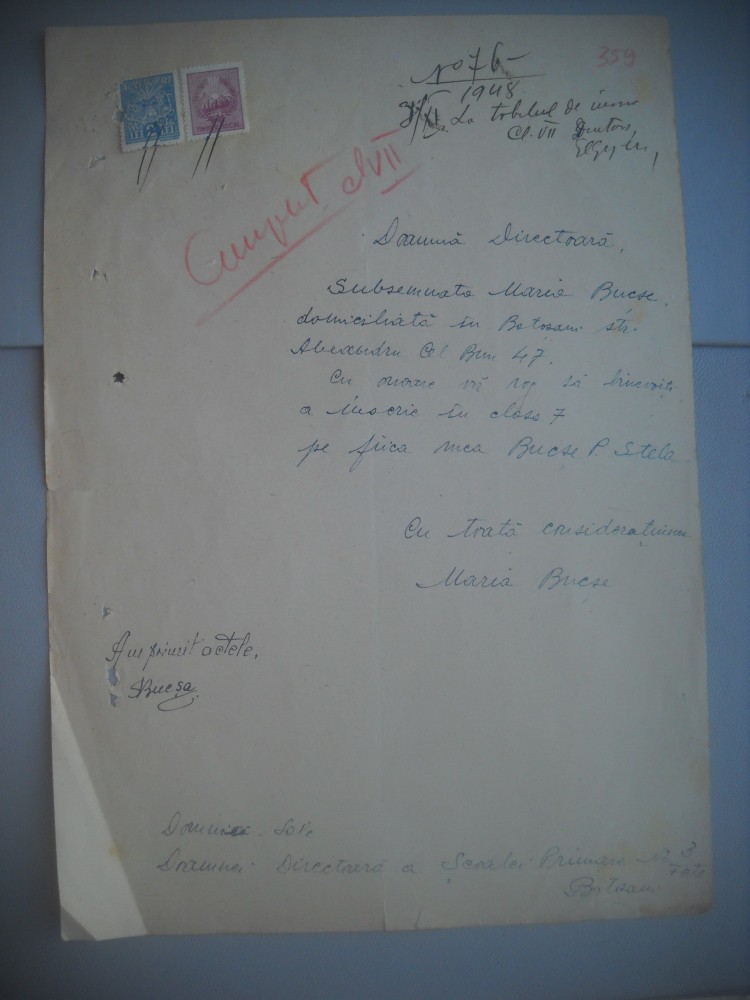 No 76
1948
359
La tabelul de
Cl. VII
cl VII
Doamnă Directoară,
Subsemnata Maria Bucse,
domiciliată în Botosani str.
Alexandru Cel Bun 47.
Cu onoare vă rog să binevoiți
a înscrie în clasa 7
pe fiica mea Bucse P. Stela
Cu toată considerațiunea
Maria Bucse
Am primit actele,
Bucșa
Doamnei Directoară a Școalei Primare No 3 fete
Botosani